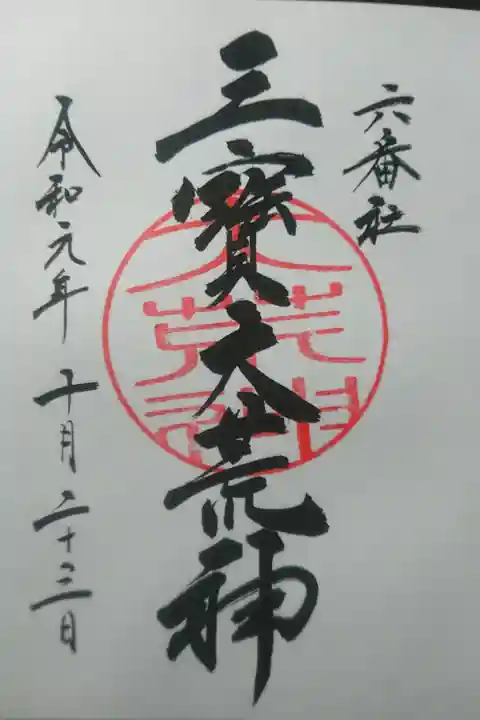 六番社
三寶大荒神
令和元年 十月二十三日